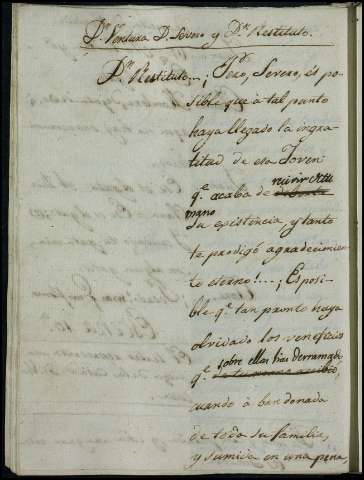 Dn. Ventura D. Severo y Dn. Restituto.
Dn. Restituto... ¡Pero, Severo, és po-
sible que à tal punto
haya llegado la ingra-
titud de esa Joven
qe. acaba de recivir de tu
mano
su existencia, y tanto
te prodigó agradecimien-
to eterno!.... ¡Es posi-
ble qe. tan pronto haya
olvidado los veneficios
qe. sobre ellas has derramado
cuando à bandonada
de toda su familia,
y sumida en una pena,